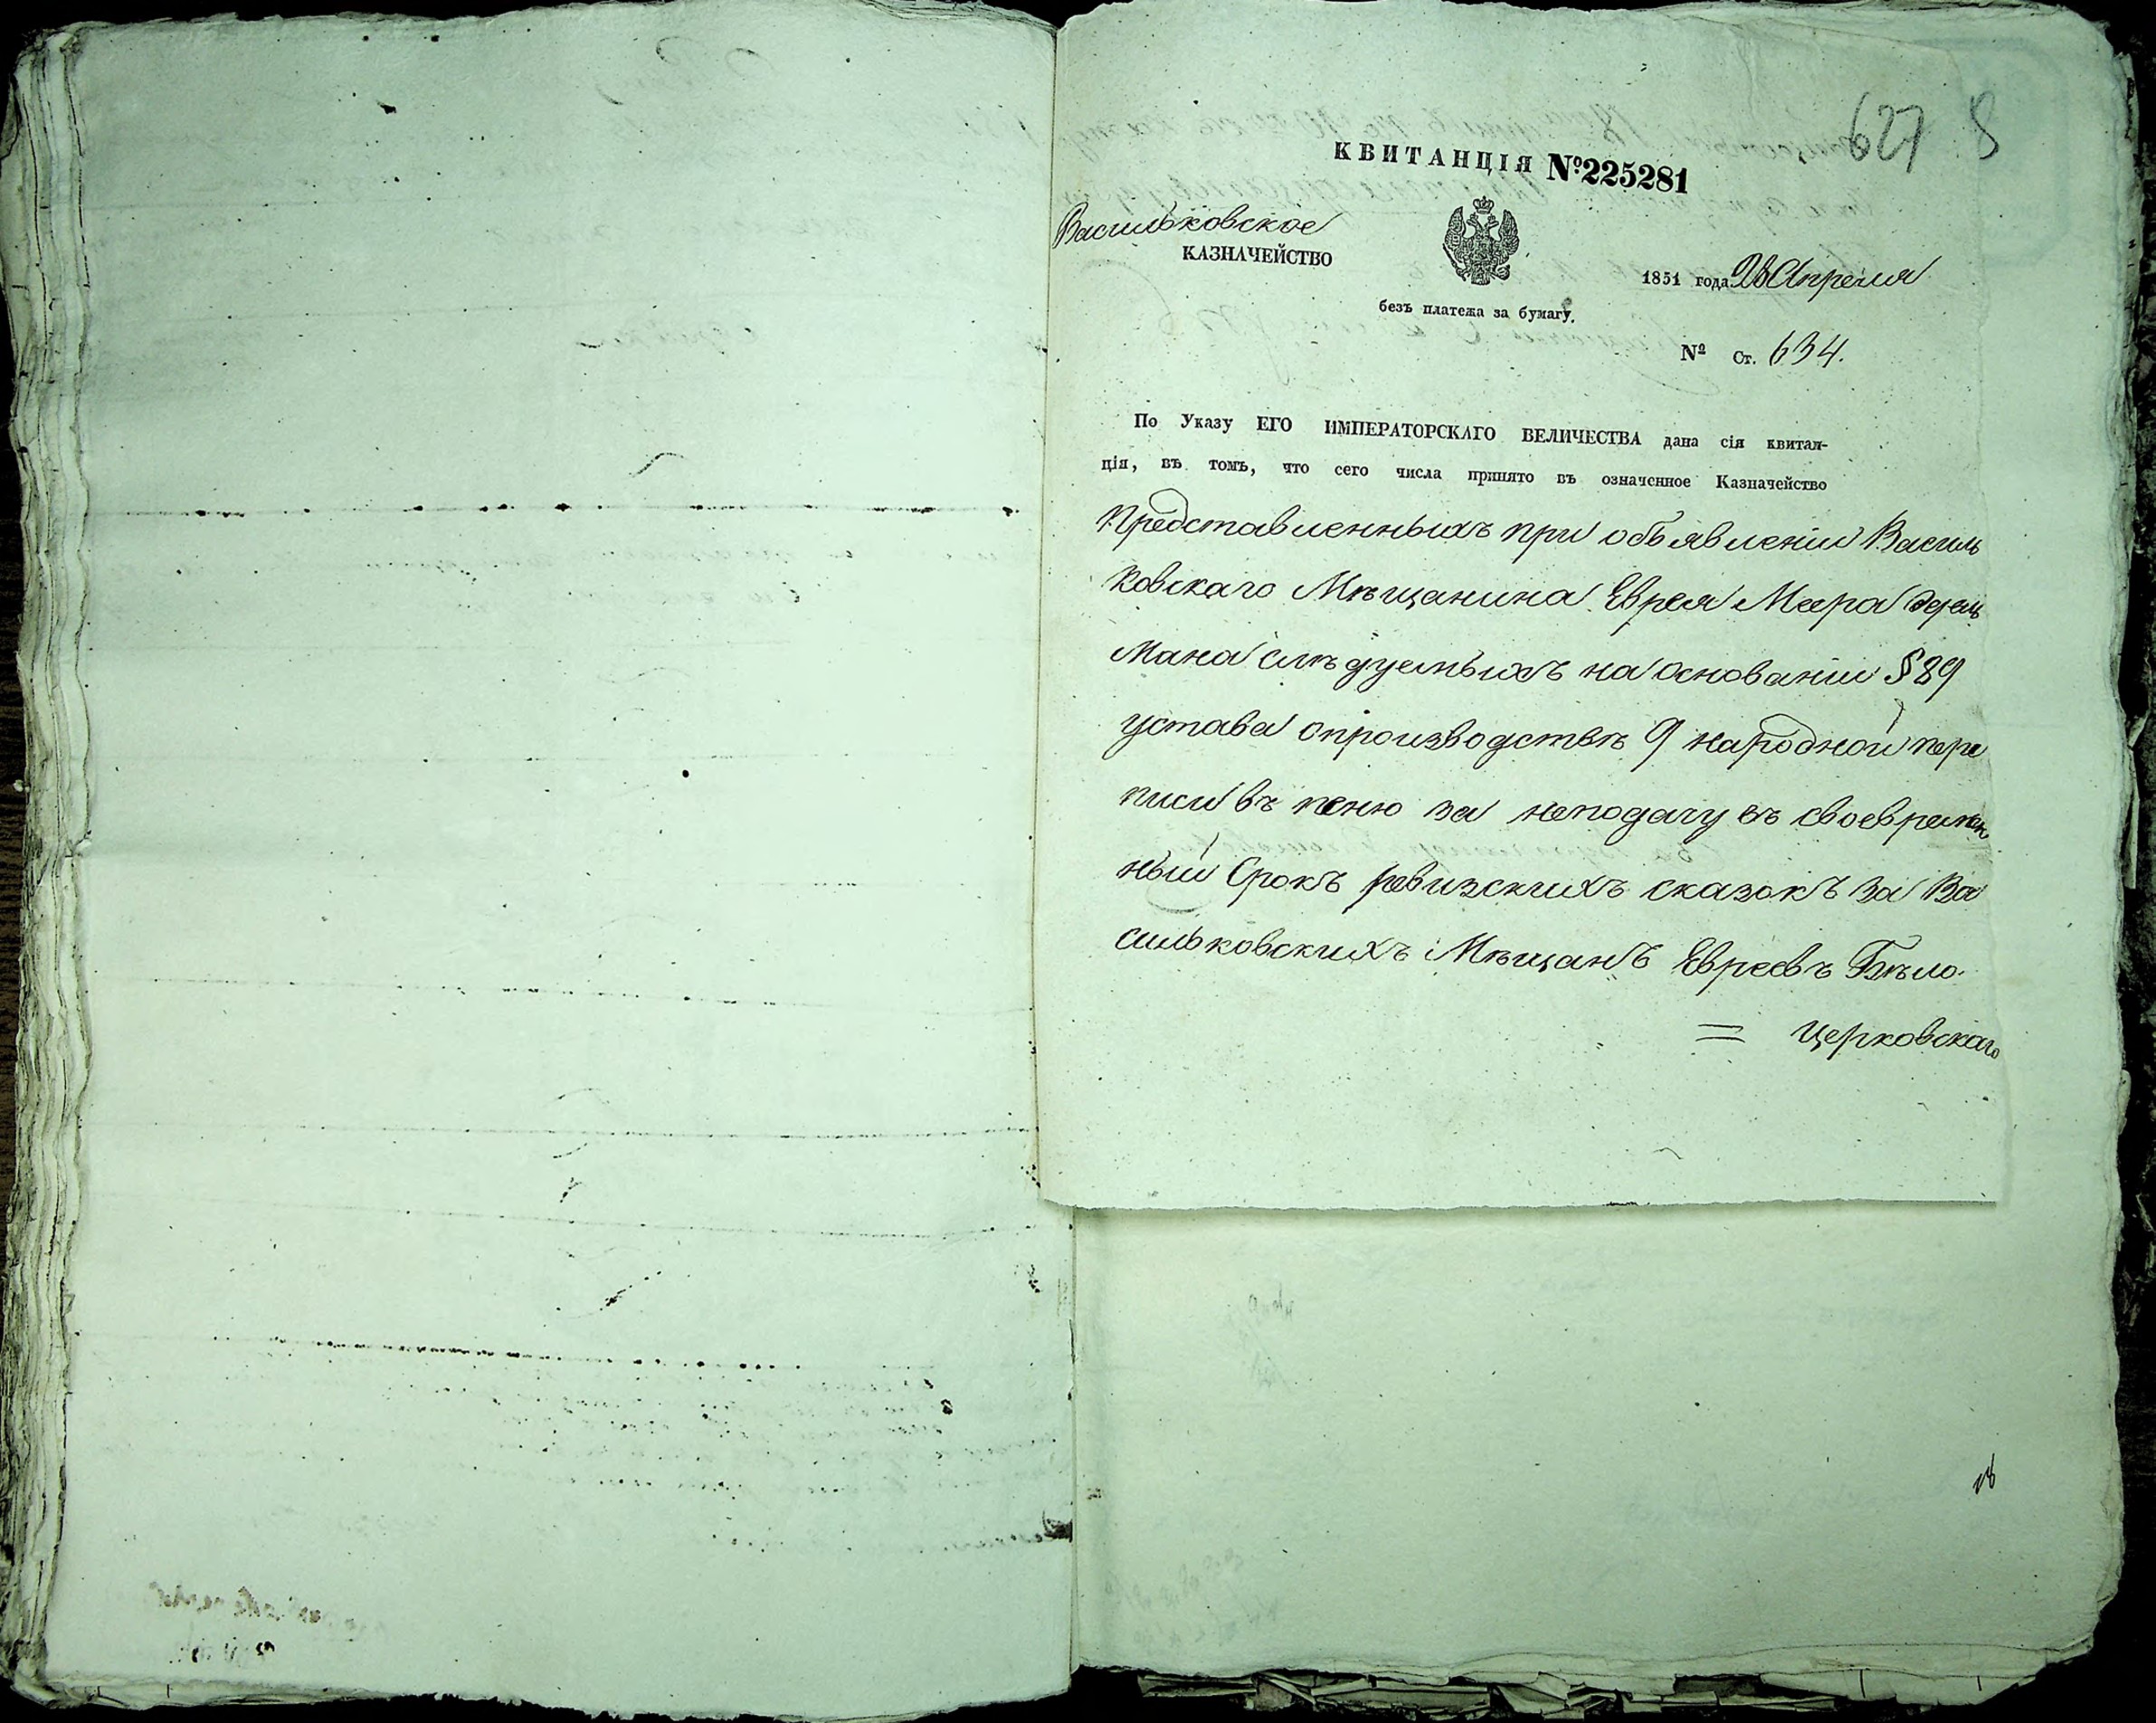 627 8
КВИТАНЦІЯ №225281
Васильковское
КАЗНАЧЕЙСТВО
1851 года 28 Апреля
безъ платежа за бумагу.
№ Ст. 634.
По Указу ЕГО ИМПЕРАТОРСКАГО ВЕЛИЧЕСТВА дана сія квитан-
ція, въ томъ, что сего числа принято въ означенное Казначейство
Представленныхъ при объявленіи Василь
ковскаго Мѣщанина Еврея Меера
мана слѣдуемыхъ на основаніи §89
устава опроизводствѣ 9 народной пере
писи въ пеню за неподачу въ своевремен
ный Срокъ ревизскихъ сказокъ за Ва
сильковскихъ Мѣщанъ Евреевъ Бѣло
= церковскаго